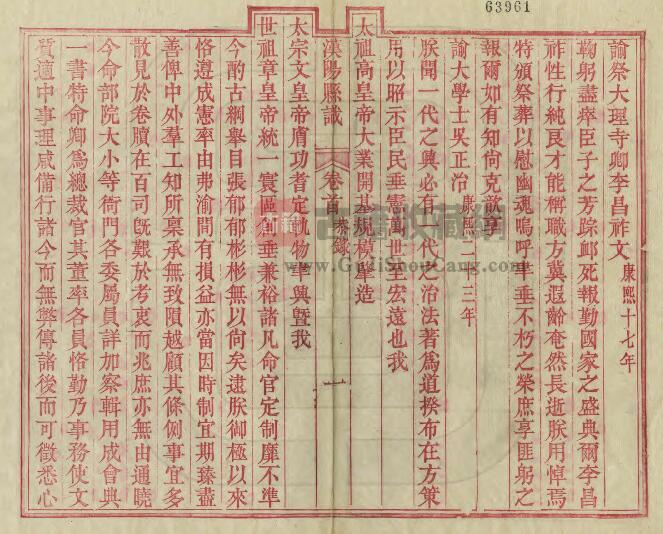 63961
諭祭大理寺卿李昌祚文 康熙十七年
鞠躬盡瘁臣子之芳踪卹死報勤國家之盛典爾李昌
祚性行純良才能稱職方冀遐齡奄然長逝朕用悼焉
特頒祭葬以慰幽魂嗚呼聿垂不朽之榮庶享匪躬之
報爾如有知尚克歆享
諭大學士吳正治 康熙二十三年
朕聞一代之興必有一代之治法著為道揆布在方策
用以昭示臣民垂憲萬世至宏遠也我
太祖高皇帝大業開基規模肇造
漢陽縣識 卷首 恭錄 一
太宗文皇帝膚功耆定軌物聿興暨我
世祖章皇帝統一寰區聿垂兼裕諸凡命官定制靡不準
今酌古綱舉目張郁郁彬彬無以尚矣逮朕御極以來
恪遵成憲率由弗渝間有損益亦當因時制宜期臻盡
善俾中外羣工知所稟承無致隕越顧其條例事宜多
散見於卷牘在百司旣艱於考衷而兆庶亦無由通曉
今命部院大小等衙門各委屬員詳加察輯用成會典
一書特命卿為總裁官其董率各員恪勤乃事務使文
質適中事理咸備行諸今而無弊傳諸後而可徵悉心
古籍 古籍收藏網
www.GujiShouCang.com